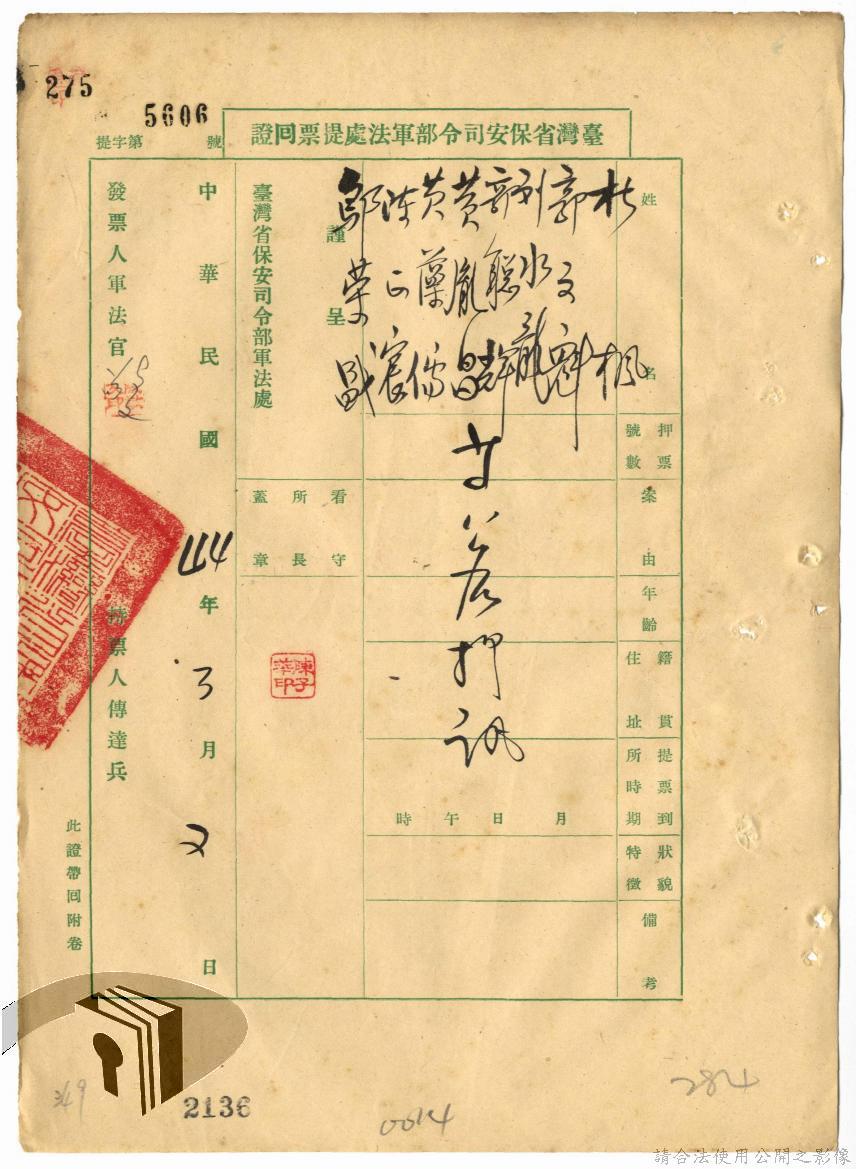 275
5606
提字第 號
臺灣省保安司令部軍法處提票回證
姓名
杜 楓
郭文魁
劉水龍
郭聰輝
黃胤昌
黃蘭儒
陳正宸
鄔榮
押票號數
案由
年齡
籍貫住址
提票到所時期
月 日 午 時
狀貌特徵
備考
押訊
謹呈
臺灣省保安司令部軍法處
看守所所長蓋章
陳子華印
中華民國44年3月 日
發票人軍法官
持票人傳達兵
此證帶回附卷
349
2136
0014
284
請合法使用公開之影像